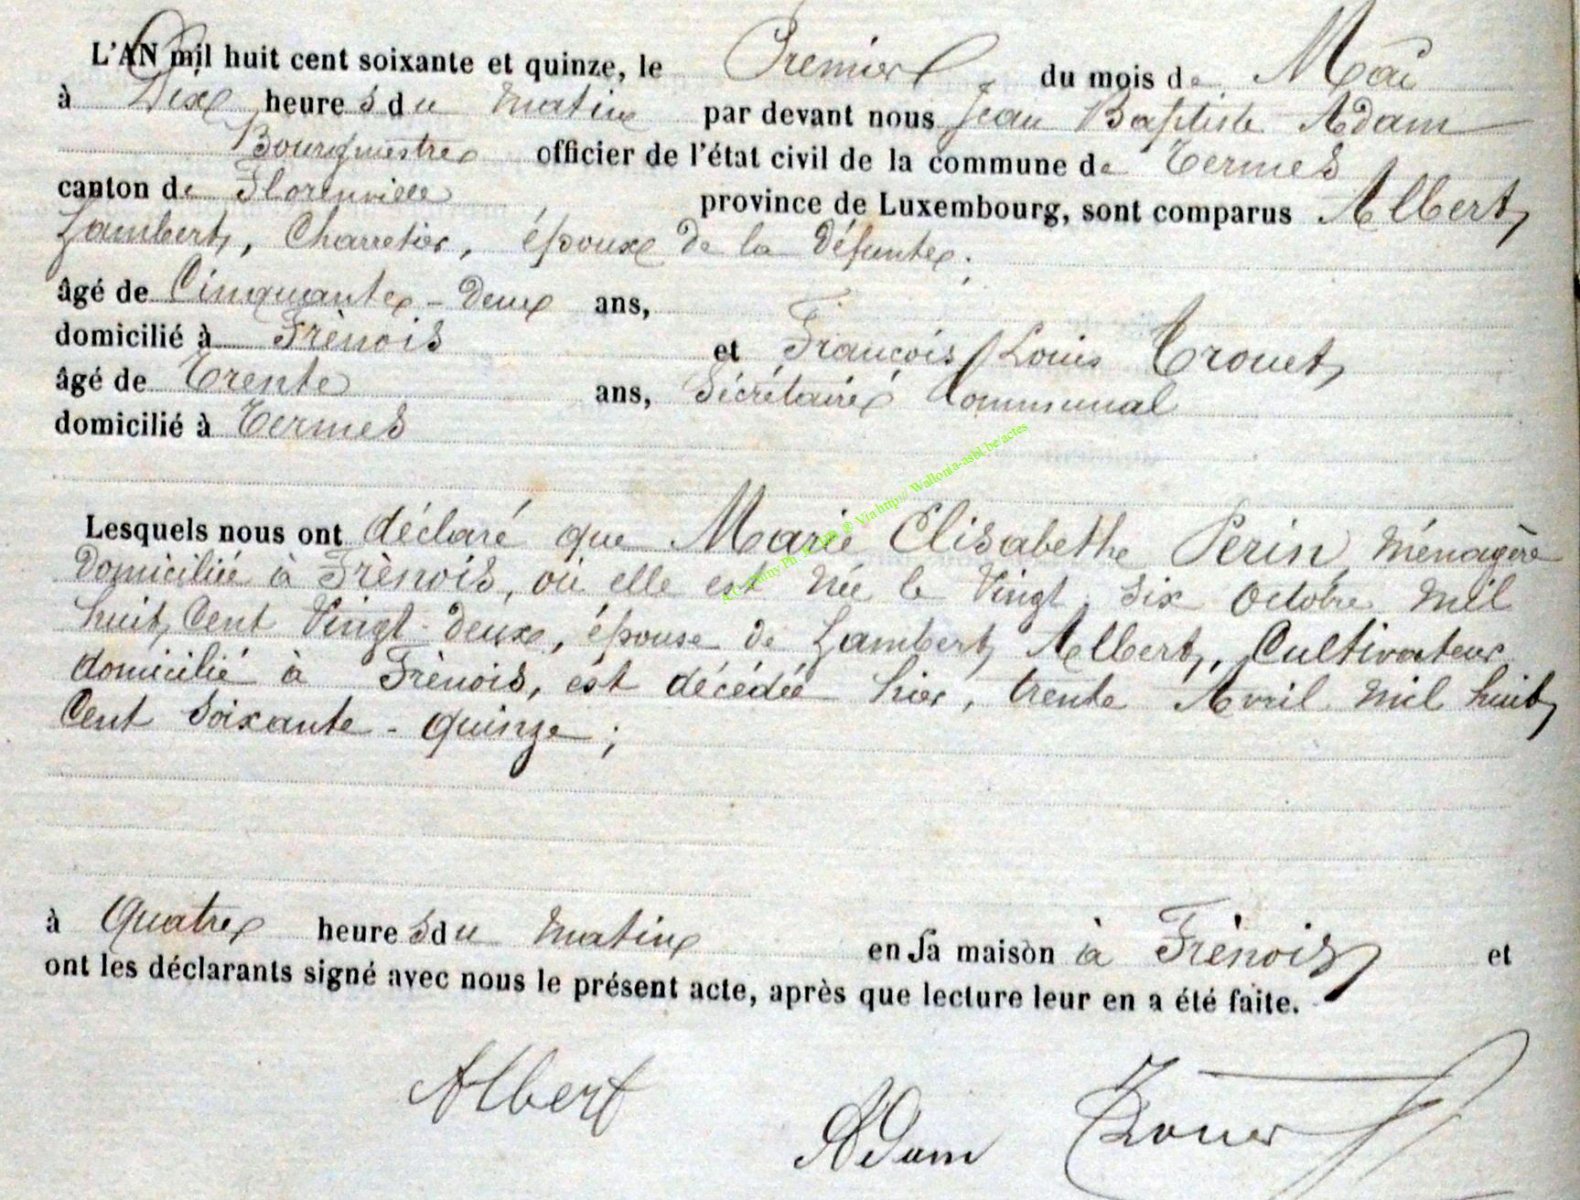 L'AN mil huit cent soixante et quinze, le Premier du mois de Mai
à Dix heures du matin par devant nous Jean Baptiste Adam
Bourgmestre officier de l'état civil de la commune de Termes
canton de Florenville province de Luxembourg, sont comparus Albert
Lambert, Charretier, époux de la défunte;
âgé de Cinquante-deux ans,
domicilié à Frènois et François Louis Trouet,
âgé de Trente ans, Sécrétaire Communal
domicilié à Termes
Lesquels nous ont déclaré que Marie Elisabethe Perin, Ménagère
domiciliée à Frènois, où elle est née le Vingt six Octobre mil
huit Cent Vingt-deux, épouse de Lambert Albert, Cultivateur
domicilié à Frènois, est décédée hier, trente Avril mil huit
Cent soixante-quinze;
à Quatre heures du matin en sa maison à Frènois et
ont les déclarants signé avec nous le présent acte, après que lecture leur en a été faite.
Albert
Adam Trouet
Via http:// Wallonia-asbl.be/actes